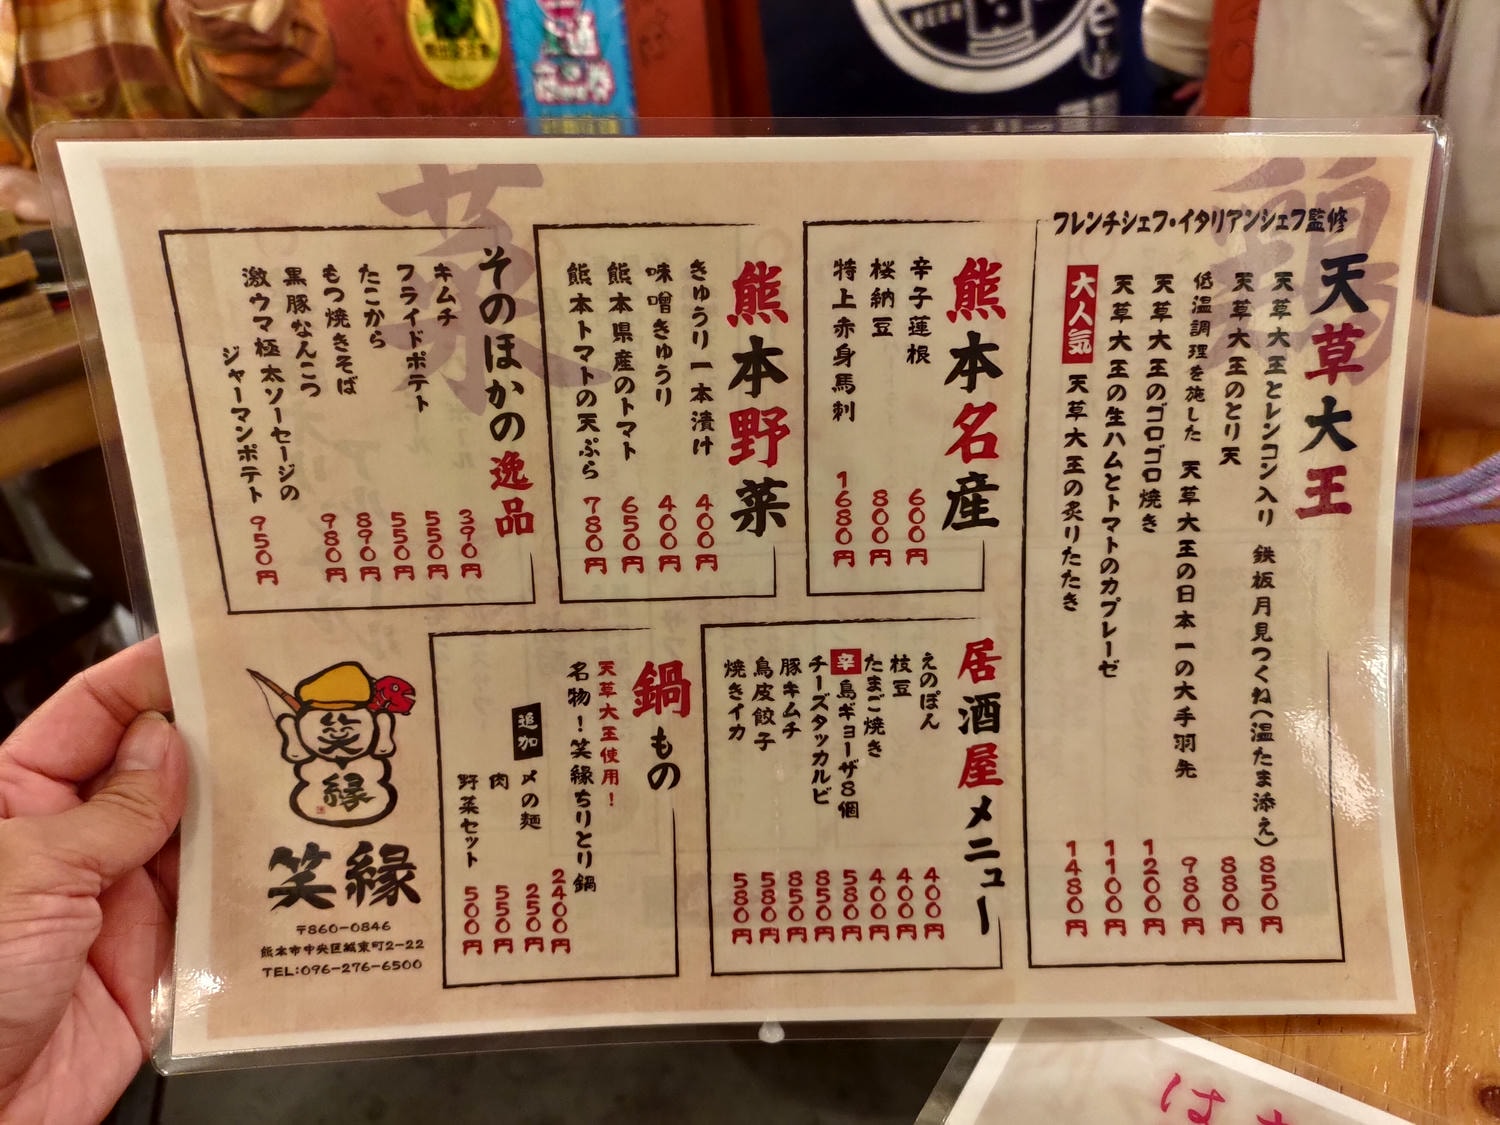 フレンチシェフ・イタリアンシェフ監修
天草大王
天草大王とレンコン入り 鉄板月見つくね(温たま添え) 850円
天草大王のとり天 880円
低温調理を施した 天草大王の日本一の大手羽先 980円
天草大王のゴロゴロ焼き 1200円
天草大王の生ハムとトマトのカプレーゼ 1100円
大人気 天草大王の炙りたたき 1480円
熊本名産
辛子蓮根 600円
桜納豆 800円
特上赤身馬刺 1680円
熊本野菜
きゅうり一本漬け 400円
味噌きゅうり 400円
熊本県産のトマト 650円
熊本トマトの天ぷら 780円
そのほかの逸品
キムチ 390円
フライドポテト 550円
たこから 550円
もつ焼きそば 890円
黒豚なんこつ 980円
激ウマ極太ソーセージの
ジャーマンポテト 950円
居酒屋メニュー
えのぽん 400円
枝豆 400円
たまご焼き 400円
辛 島ギョーザ8個 580円
チーズタッカルビ 850円
豚キムチ 850円
鳥皮餃子 580円
焼きイカ 580円
鍋もの
天草大王使用!
名物!笑縁ちりとり鍋 2400円
追加
〆の麺 250円
肉 550円
野菜セット 500円
笑
縁
笑縁
〒860-0846
熊本市中央区城東町2-22
TEL:096-276-6500
鶏
菜
BEER
は